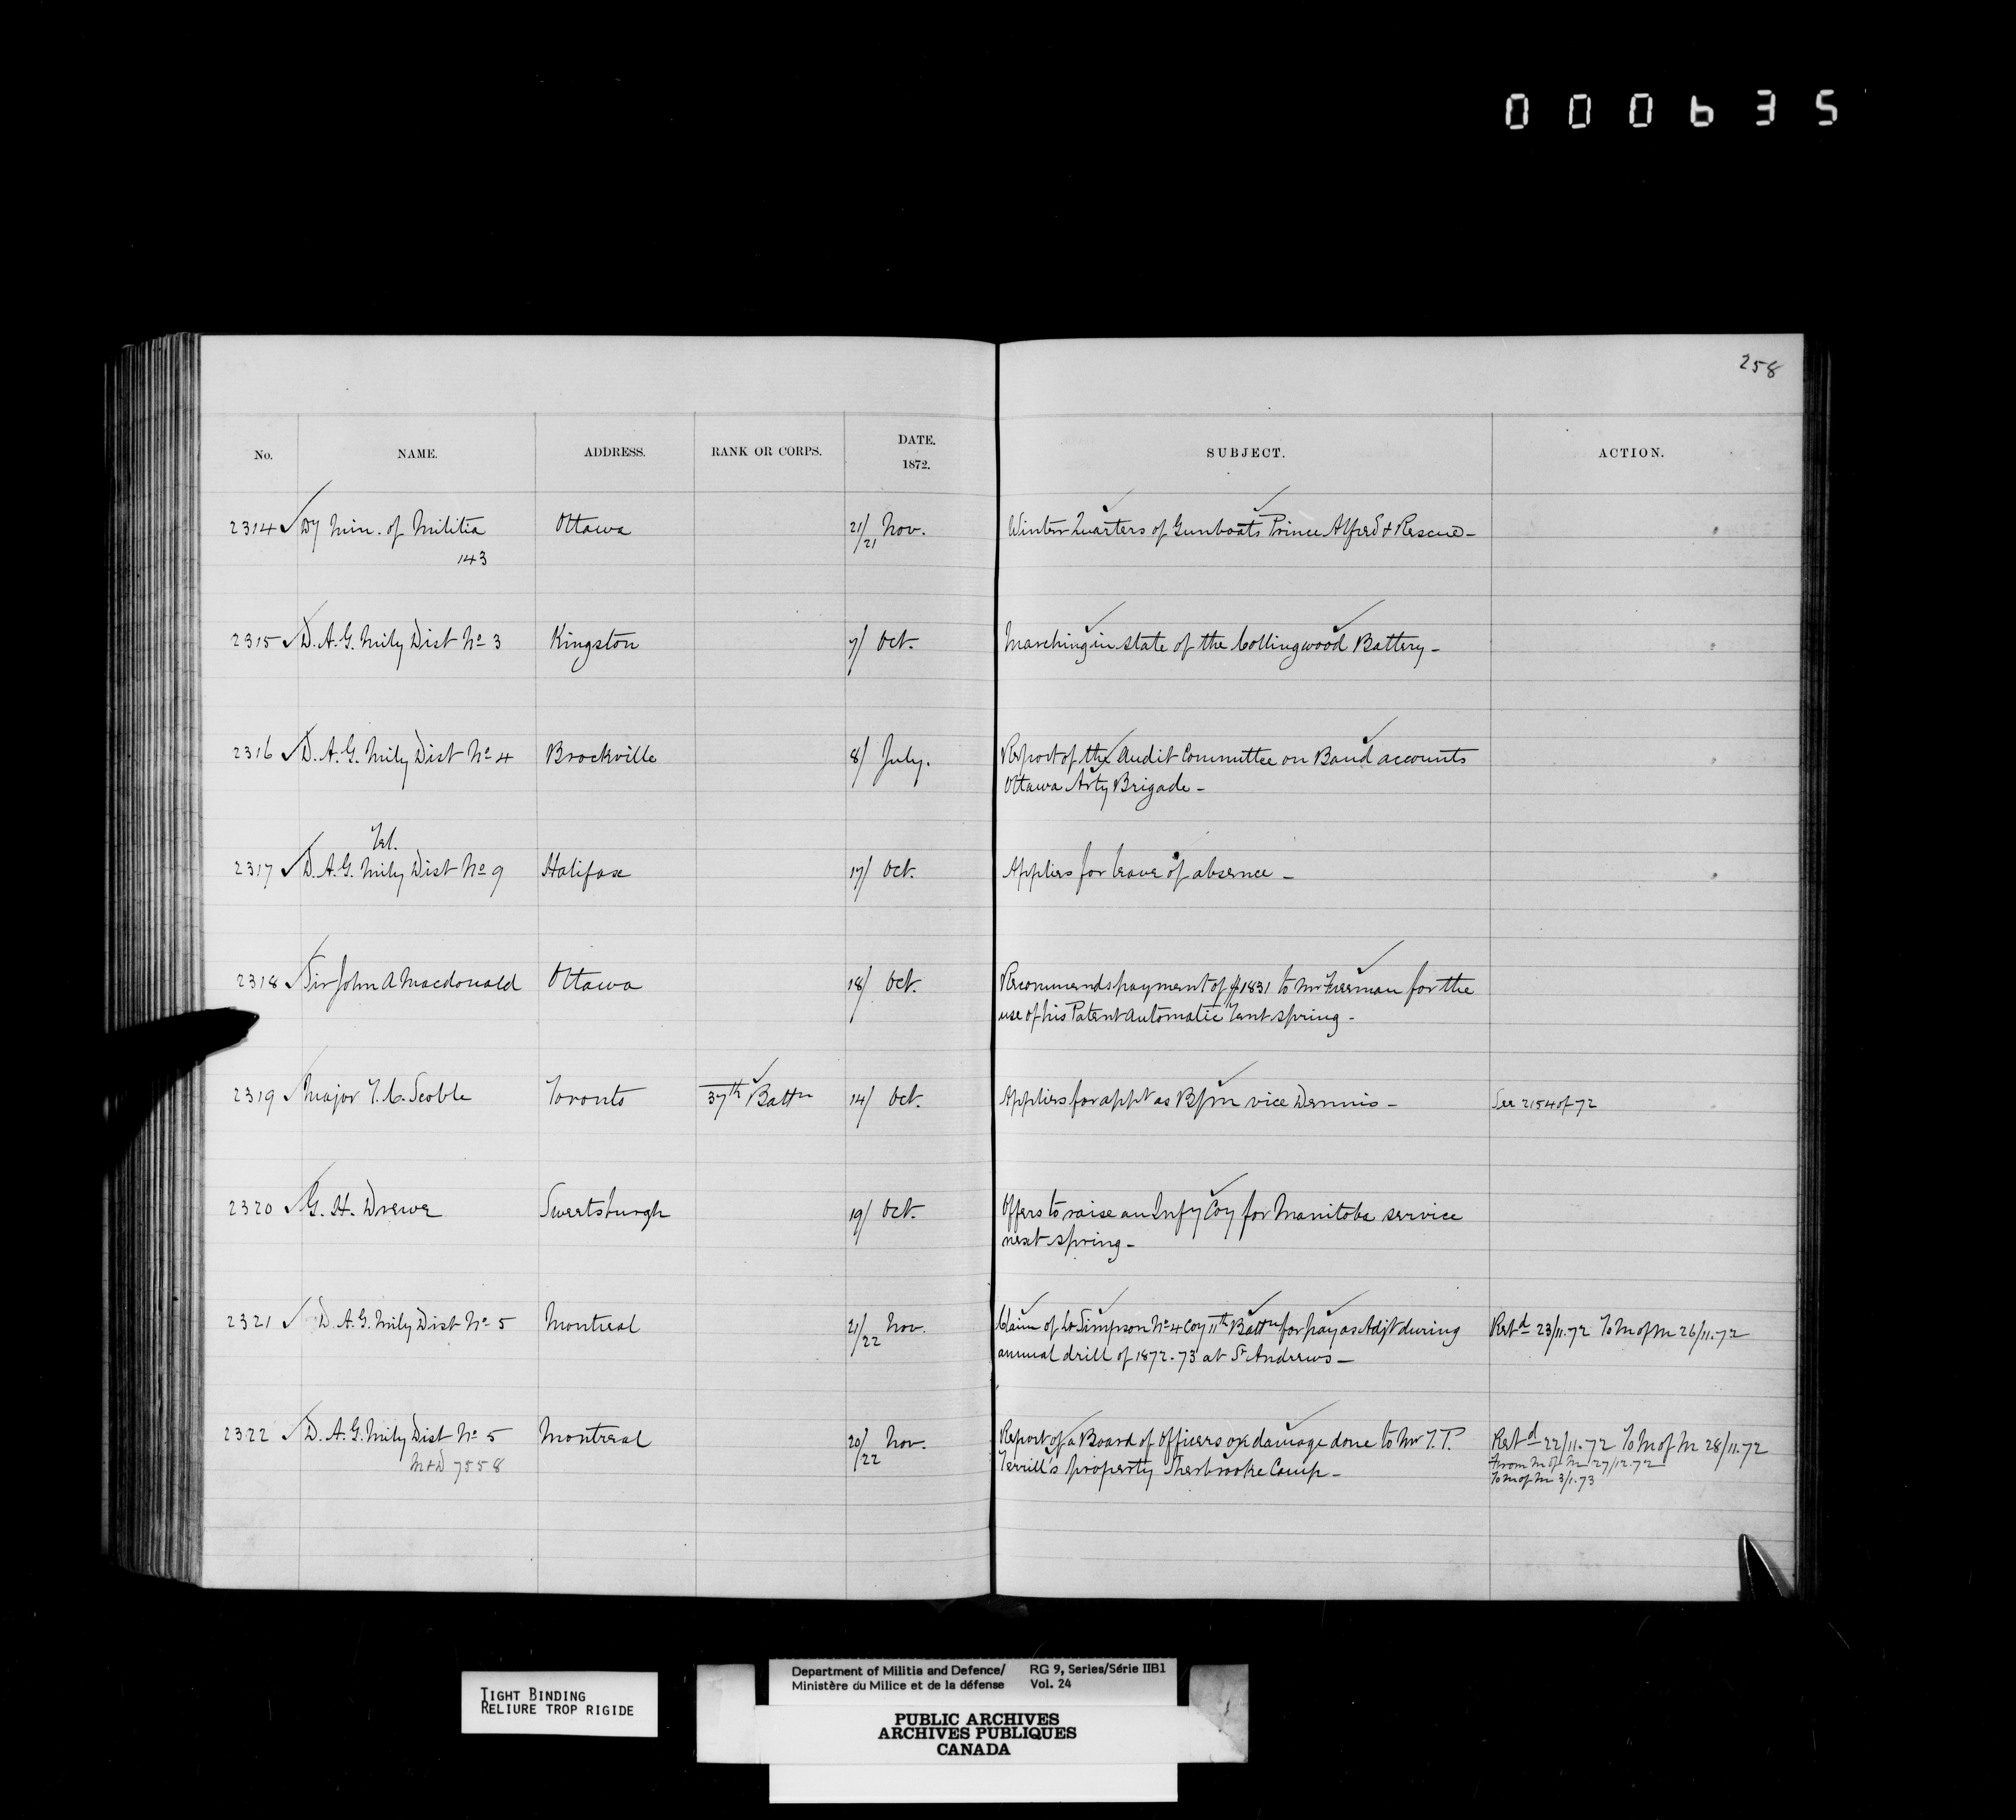 000635
258
No. NAME. ADDRESS. RANK OR CORPS. DATE. 1872. SUBJECT. ACTION.
2314 Dy Min. of Militia Ottawa 21/21 Nov. Winter Quarters of Gunboats Prince Alfred & Rescue -
143
2315 D. A. G. Mily Dist No 3 Kingston 7/ Oct. Marching in state of the Collingwood Battery -
2316 D. A. G. Mily Dist No 4 Brockville 8/ July. Report of the Audit Committee on Band accounts
Ottawa Arty Brigade -
Tel.
2317 D. A. G. Mily Dist No 9 Halifax 17/ Oct. Applies for leave of absence -
2318 Sir John A Macdonald Ottawa 18/ Oct. Recommends payment of $1831 to Mr Freeman for the
use of his Patent Automatic Tent Spring -
2319 Major T. C. Scoble Toronto 37th Battn 14/ Oct. Applies for appt as BM vice Dennis - See 2154 of 72
2320 G. H. Drewe Sweetsburgh 19/ Oct. Offers to raise an Infy Coy for Manitoba service
next spring -
2321 D. A. G. Mily Dist No 5 Montreal 21/22 Nov. Claim of Lt Simpson No 4 Coy 11th Battn for pay as Adjt during Retd 23/11.72 To M of M 26/11.72
annual drill of 1872-73 at St Andrews -
2322 D. A. G. Mily Dist No 5 Montreal 20/22 Nov. Report of a Board of Officers on damage done to Mr T. T. Retd 22/11.72 To M of M 28/11.72
M&D 7558 Terrill's property Sherbrooke Camp - From M of M 27/12.72
To M of M 3/1.73
TIGHT BINDING
RELIURE TROP RIGIDE
Department of Militia and Defence/ RG 9, Series/Série IIB1
Ministère du Milice et de la défense Vol. 24
PUBLIC ARCHIVES
ARCHIVES PUBLIQUES
CANADA